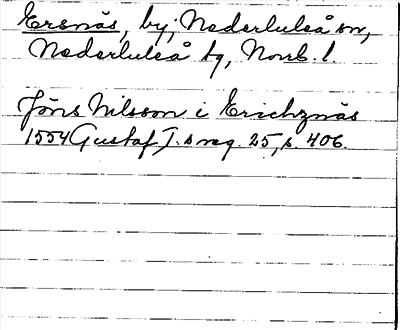 Ersnäs, by; Nederluleå sn,
Nederluleå tg, Norrb. l.
Jöns Nilsson i Erichznäs
1554 Gustaf I.s reg. 25, s. 406.